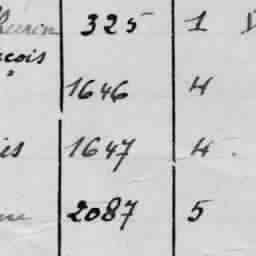 325 1
çois
1646 4
1647 4.
2087 5